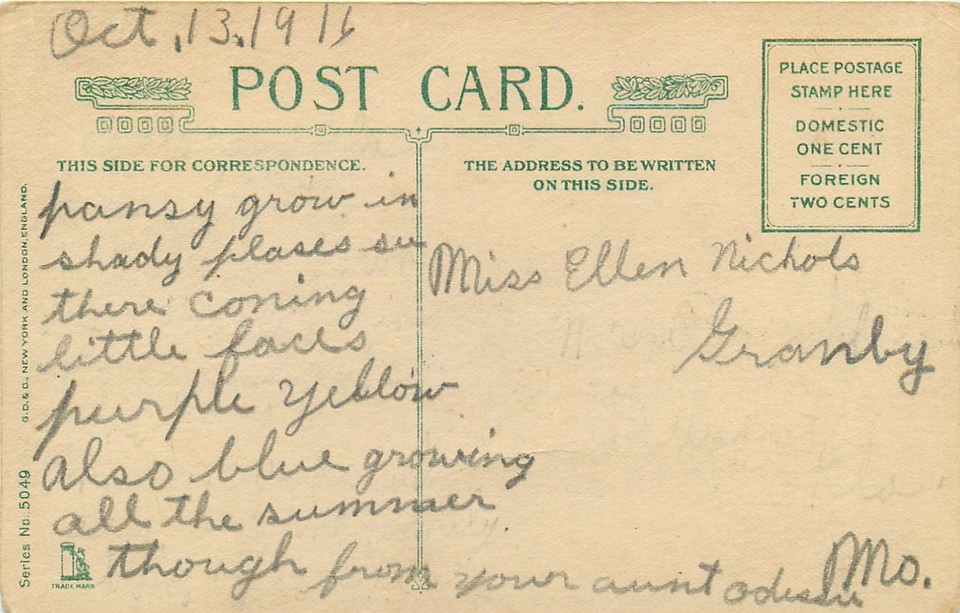 Oct. 13. 1916
POST CARD.
PLACE POSTAGE
STAMP HERE
DOMESTIC
ONE CENT
FOREIGN
TWO CENTS
THIS SIDE FOR CORRESPONDENCE.
pansy grow in
shady plases su
there coning
little faces
purple yellow
also blue growing
all the summer
though from your aunt odessu
THE ADDRESS TO BE WRITTEN
ON THIS SIDE.
Miss Ellen Nichols
Granby
Mo.
G.D.& D., NEW YORK AND LONDON, ENGLAND.
Series No. 5049
TRADE MARK